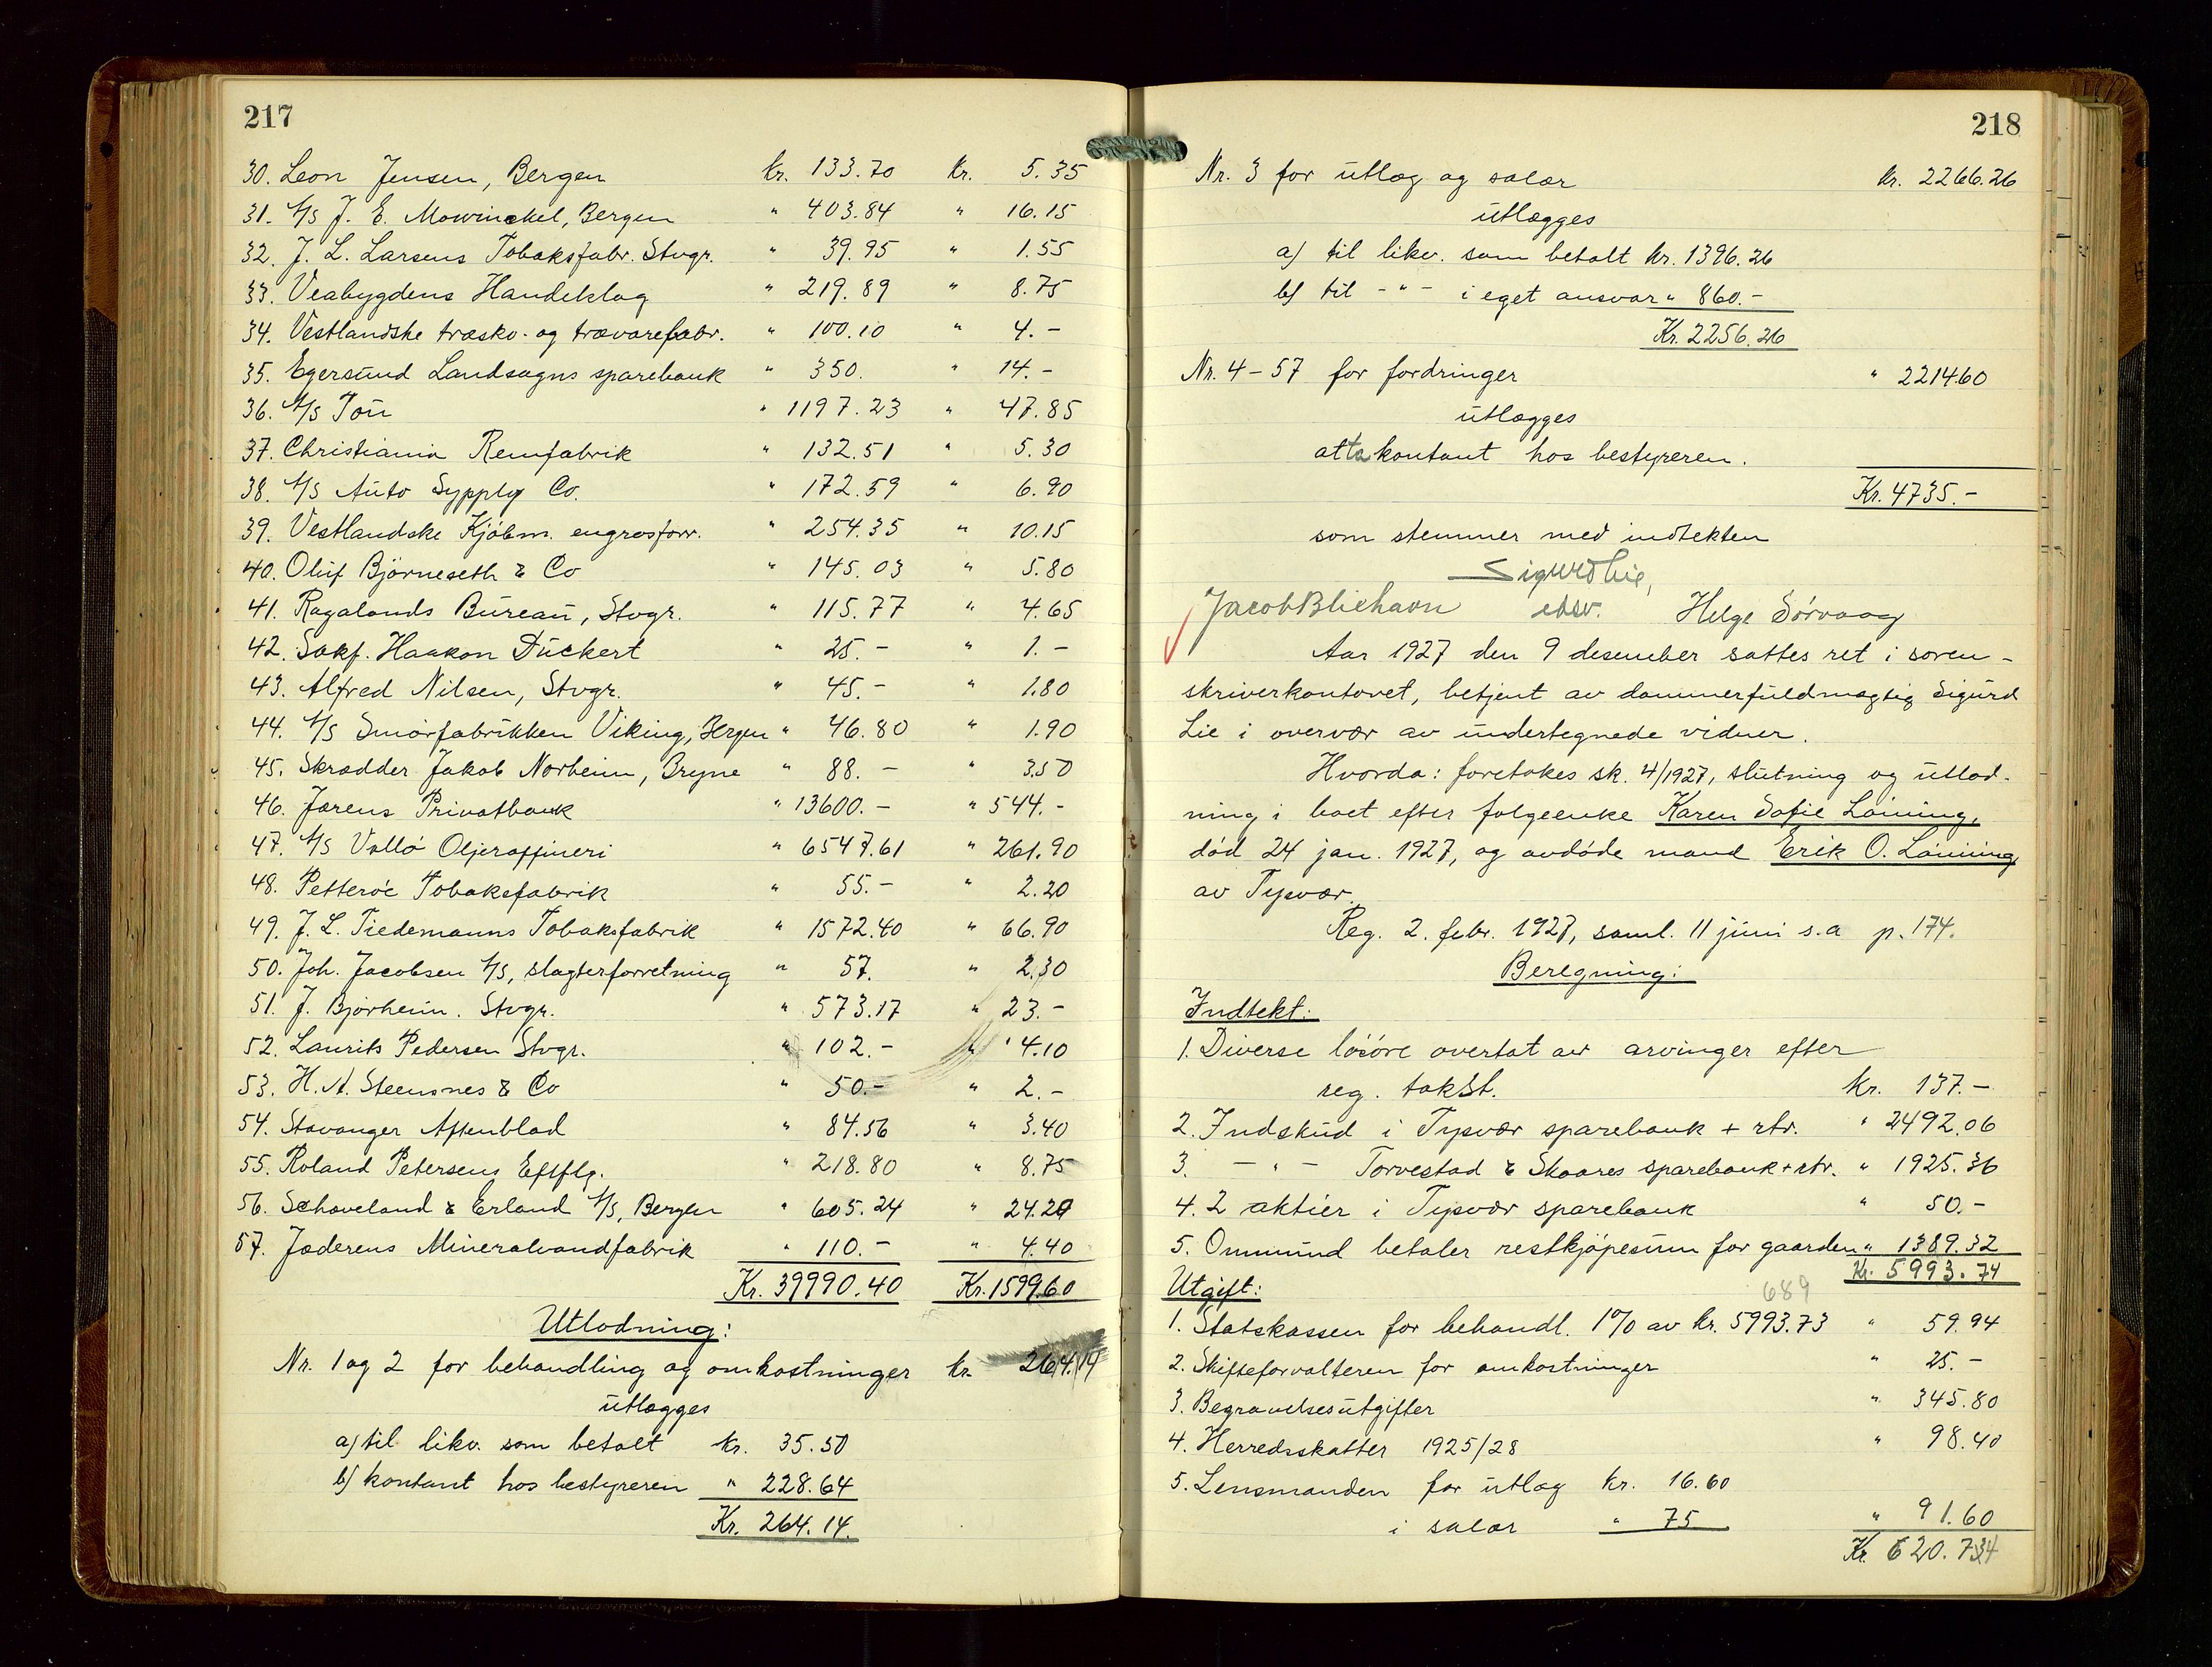 217
30. Leon Jensen, Bergen kr. 133.70 kr. 5.35
31. A/S J. E. Mowinckel, Bergen " 403.84 " 16.15
32. J. L. Larsens Tobaksfabr. Stvgr. " 39.95 " 1.55
33. Veabygdens Handelslag " 219.89 " 8.75
34. Vestlandske træsko- og trævarefabr. " 100.10 " 4.-
35. Egersund Landsogns sparebank " 350. " 14.-
36. A/S Tou " 1197.23 " 47.85
37. Christiania Remfabrik " 132.51 " 5.30
38. A/S Auto Sypply Co. " 172.59 " 6.90
39. Vestlandske Kjöbm. engrosforr. " 254.35 " 10.15
40. Oluf Björneseth & Co " 145.03 " 5.80
41. Rogalands Bureau, Stvgr. " 115.77 " 4.65
42. Sakf. Haakon Dückert " 25.- " 1.-
43. Alfred Nilsen, Stvgr. " 45.- " 1.80
44. A/S Smörfabrikken Viking, Bergen " 46.80 " 1.90
45. Skrædder Jakob Norheim, Bryne " 88.- " 3.50
46. Jærens Privatbank " 13600.- " 544.-
47. A/S Vallö Oljeraffineri " 6547.61 " 261.90
48. Petteröe Tobaksfabrik " 55.- " 2.20
49. J. L. Tiedemanns Tobaksfabrik " 1572.40 " 66.90
50. Joh. Jacobsen A/S, slagterforretning " 57. " 2.30
51. J. Bjorheim. Stvgr. " 573.17 " 23.-
52. Laurits Pedersen Stvgr. " 102.- " 4.10
53. H. A. Steensnes & Co " 50.- " 2.-
54. Stavanger Aftenblad " 84.56 " 3.40
55. Roland Petersens Eftflg. " 218.80 " 8.75
56. Schaveland & Erland A/S, Bergen " 605.24 " 24.20
57. Jæderens Mineralvandfabrik " 110.- " 4.40
Kr. 39990.40 Kr. 1599.60
Utlodning:
Nr. 1 og 2 for behandling og omkostninger kr. 264.14
utlægges
a) til likv. som betalt kr. 35.50
b) kontant hos bestyreren " 228.64
Kr. 264.14.
218
Nr. 3 for utlæg og salær kr. 2266.26
utlægges
a) til likv. som betalt kr. 1396.26
b) til - " - i eget ansvar " 860.-
Kr. 2256.26
Nr. 4-57 for fordringer " 2214.60
utlægges
atta kontant hos bestyreren.
Kr. 4735.-
som stemmer med indtekten
Sigurd Lie,
Jacob Bliehavn edsv. Helge Sörvaag
Aar 1927 den 9 desember sattes ret i soren-
skriverkontoret, betjent av dommerfuldmægtig Sigurd
Lie i overvær av undertegnede vidner.
Hvorda: foretokes sk. 4/1927, slutning og utlod-
ning i boet efter følgeenke Karen Sofie Löining,
död 24 jan. 1927, og avdöde mand Erik O. Löining
av Tysvær.
Reg. 2. febr. 1927, saml. 11 juni s.a p. 174.
Beregning:
Indtekt:
1. Diverse lösöre overtat av arvinger efter
reg. takst. kr. 137.-
2. Indskud i Tysvær sparebank + rtr. " 2492.06
3. - " - Torvestad & Skaares sparebank + rtr. " 1925.36
4. 2 aktier i Tysvær sparebank " 50.-
5. Ommund betaler restkjöpesum for gaarden " 1389.32
Kr. 5993.74
689
Utgift:
1. Statskassen for behandl. 1% av kr. 5993.73 " 59.94
2. Skifteforvalteren for omkostninger " 25.-
3. Begravelsesutgifter " 345.80
4. Herredsskatter 1925/28 " 98.40
5. Lensmanden for utlæg kr. 16.60
i salær " 75 " 91.60
Kr. 620.74